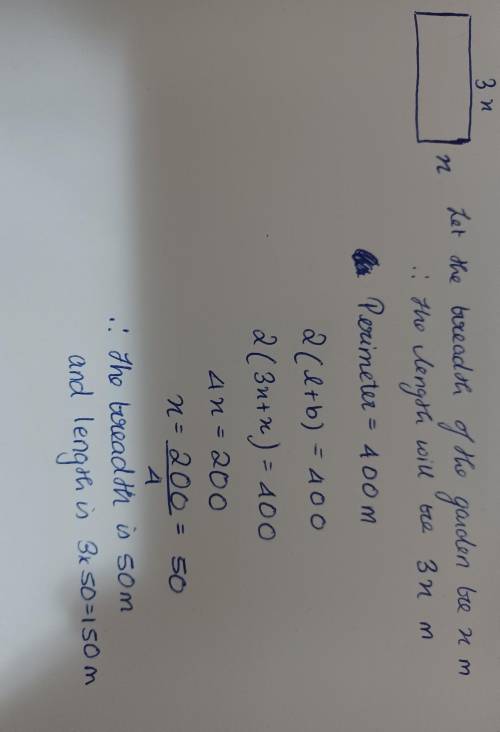 3x
x
Let the breadth of the garden be x m
∴ the length will be 3x m
Perimeter = 400m
2(l+b) = 400
2(3x+x) = 400
4x = 200
x = 200/4 = 50
∴ the breadth is 50m
and length is 3x50=150m